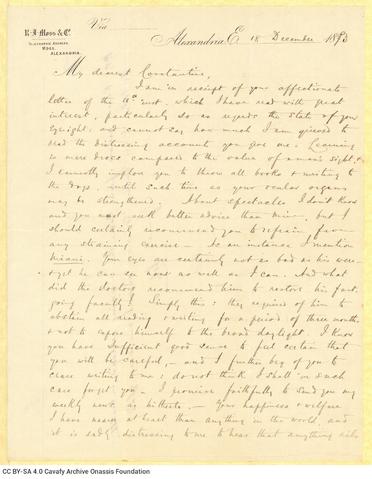 R. J. Moss & Co.
TELEGRAPHIC ADDRESS,
MOSS,
ALEXANDRIA.
Via
Alexandria E. 18 December 1883
My dearest Constantine,
I am in receipt of your affectionate
letter of the inst. which I have read with great
interest, particularly so as regards the state of your
Eyesight, and cannot say how much I am grieved to
read the distressing account you give me. Learning
is mere dross compared to the value of a man's sight, &
I earnestly implore you to throw all books & writing to
the dogs, until such time as your ocular organs
may be strengthened. About spectacles I don't know
and you must seek better advice than mine, but I
should certainly recommend you to refrain from
any straining exercise — As an instance I mention
Your eyes are certainly not as bad as his were
& yet he can see now as well as I can. And what
did the doctors recommend him to restore his fast
going faculty? Simply this: they required of him to
abstain all reading & writing for a period of three months
& not to expose himself to the broad daylight. I know
you have sufficient good sense to feel certain that
you will be careful, — and I further beg of you to
cease writing to me; do not think I shall in such
case forget you. I promise faithfully to send you my
weekly news as hitherto. — Your happiness & welfare
I have nearer at heart than anything in the world, and
it is sadly distressing to me to hear that anything ails
CC BY-SA 4.0 Cavafy Archive Onassis Foundation